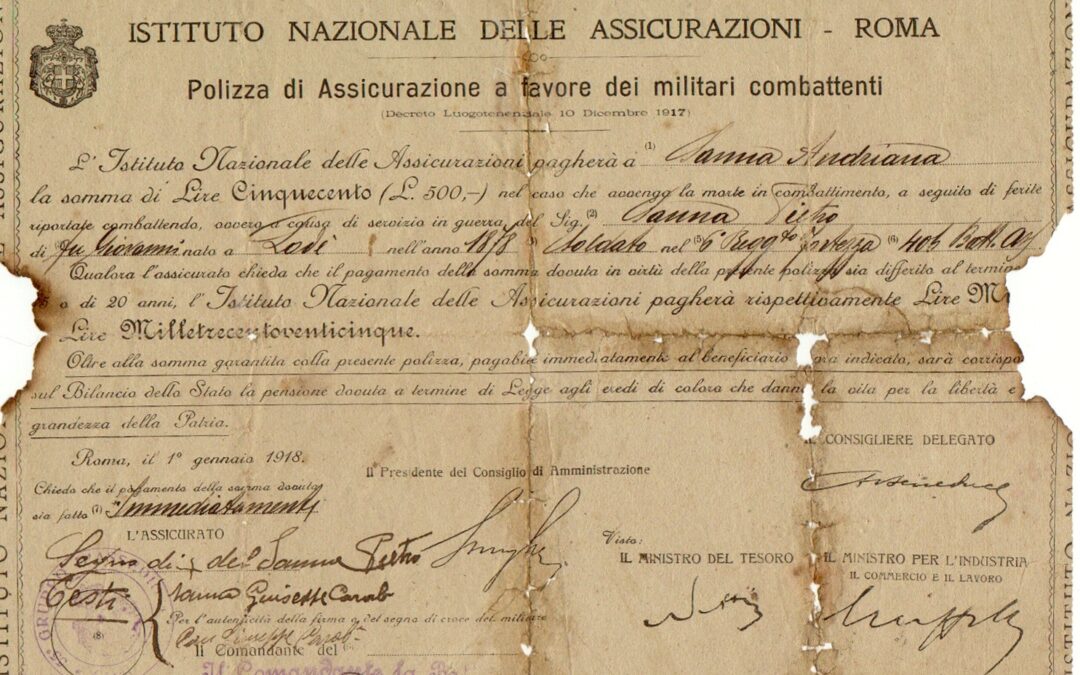 ISTITUTO NAZIONALE DELLE ASSICURAZIONI - ROMA
Polizza di Assicurazione a favore dei militari combattenti
(Decreto Luogotenenziale 10 Dicembre 1917)
L'Istituto Nazionale delle Assicurazioni pagherà a (1) Sanna Andriana
la somma di Lire Cinquecento (L. 500,-) nel caso che avvenga la morte in combattimento, a seguito di ferite
riportate combattendo, ovvero a causa di servizio in guerra, del Sig. (2) Sanna Pietro
di fu Giovanni nato a Lodè nell'anno 1878 Soldato nel (5) 6 Regg.to Fortezza (6) 405
Qualora l'assicurato chieda che il pagamento della somma dovuta in virtù della presente polizza sia differito al termine
o di 20 anni, l'Istituto Nazionale delle Assicurazioni pagherà rispettivamente Lire
Lire Milletrecentoventicinque.
Oltre alla somma garantita colla presente polizza, pagabile immediatamente al beneficiario indicato, sarà
sul Bilancio dello Stato la pensione dovuta a termine di Legge agli eredi di coloro che danno la vita per la libertà e
grandezza della Patria.
Roma, il 1° gennaio 1918.
IL CONSIGLIERE DELEGATO
Il Presidente del Consiglio di Amministrazione
Chiedo che il pagamento della somma dovuta
sia fatto (7) Immediatamente
L'ASSICURATO
Visto:
IL MINISTRO DEL TESORO
IL MINISTRO PER L'INDUSTRIA
IL COMMERCIO E IL LAVORO
Segno di del Sanna Pietro
Testi
Sanna
(8)
Per l'autenticità della firma o del segno di croce del militare
Giuseppe
Il Comandante del
Il Comandante la
ISTITUTO